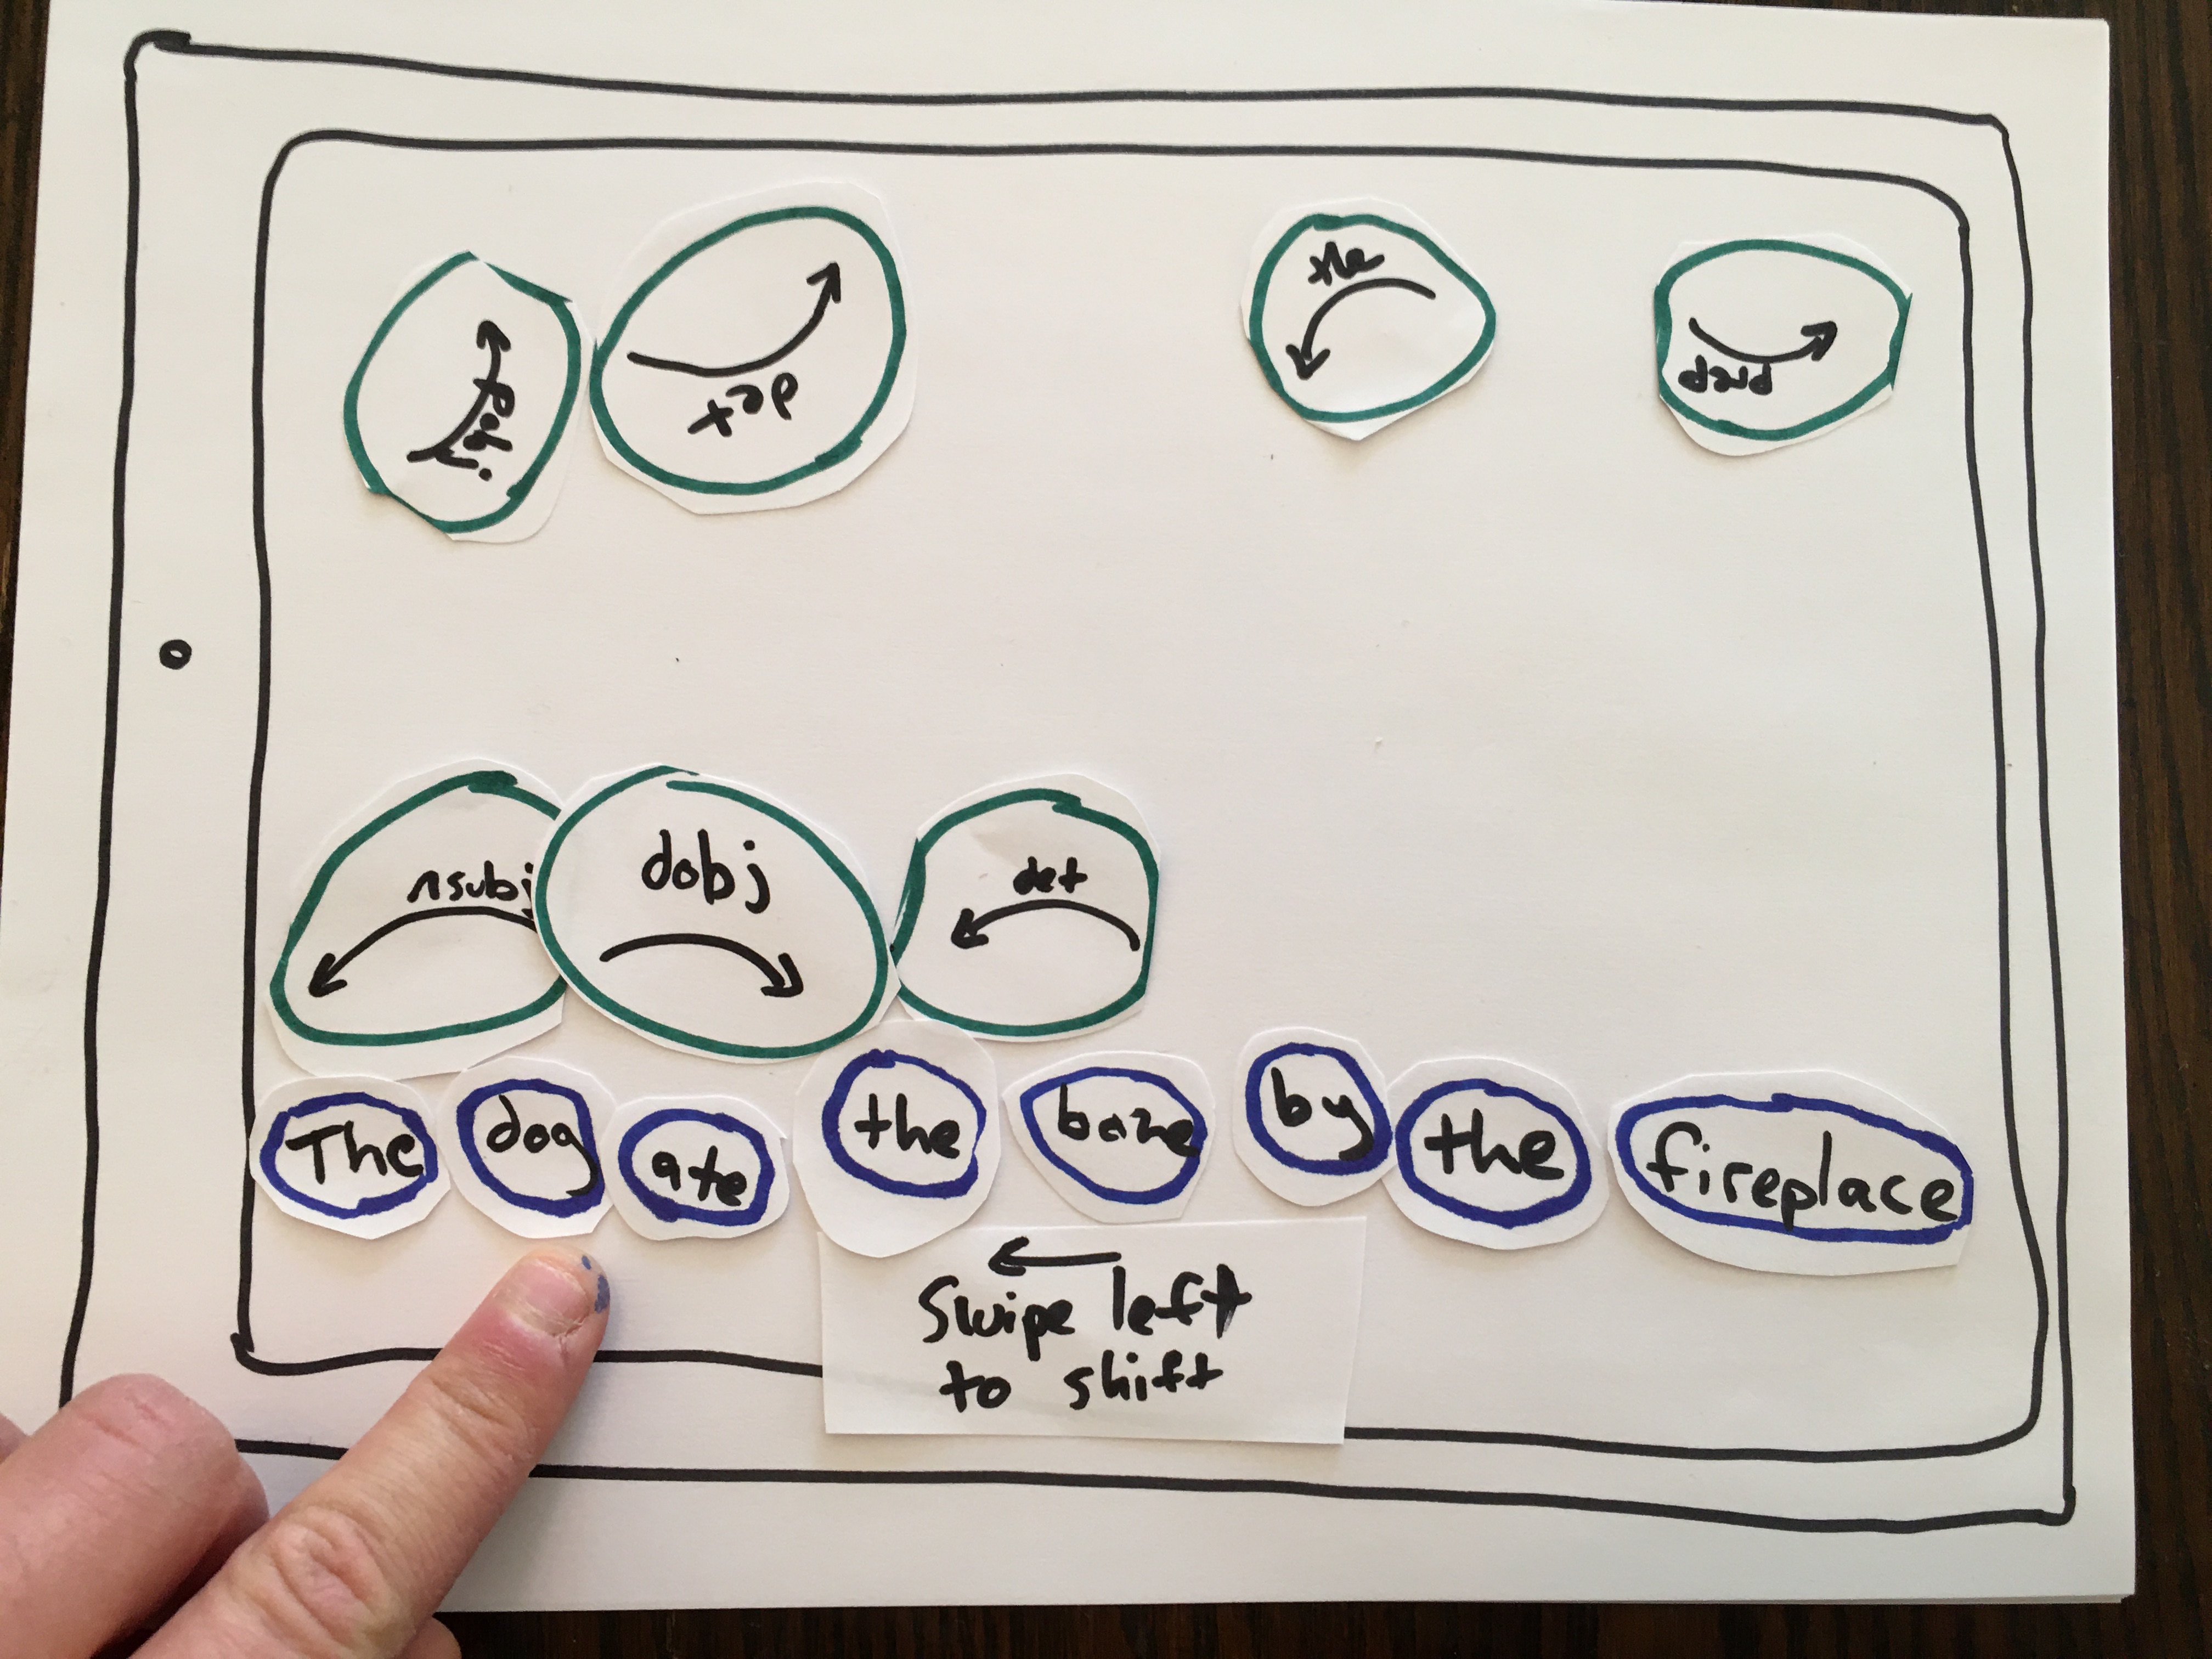 pobj
det
prep
nsubj
dobj
det
The dog ate the bone by the fireplace
Swipe left
to shift